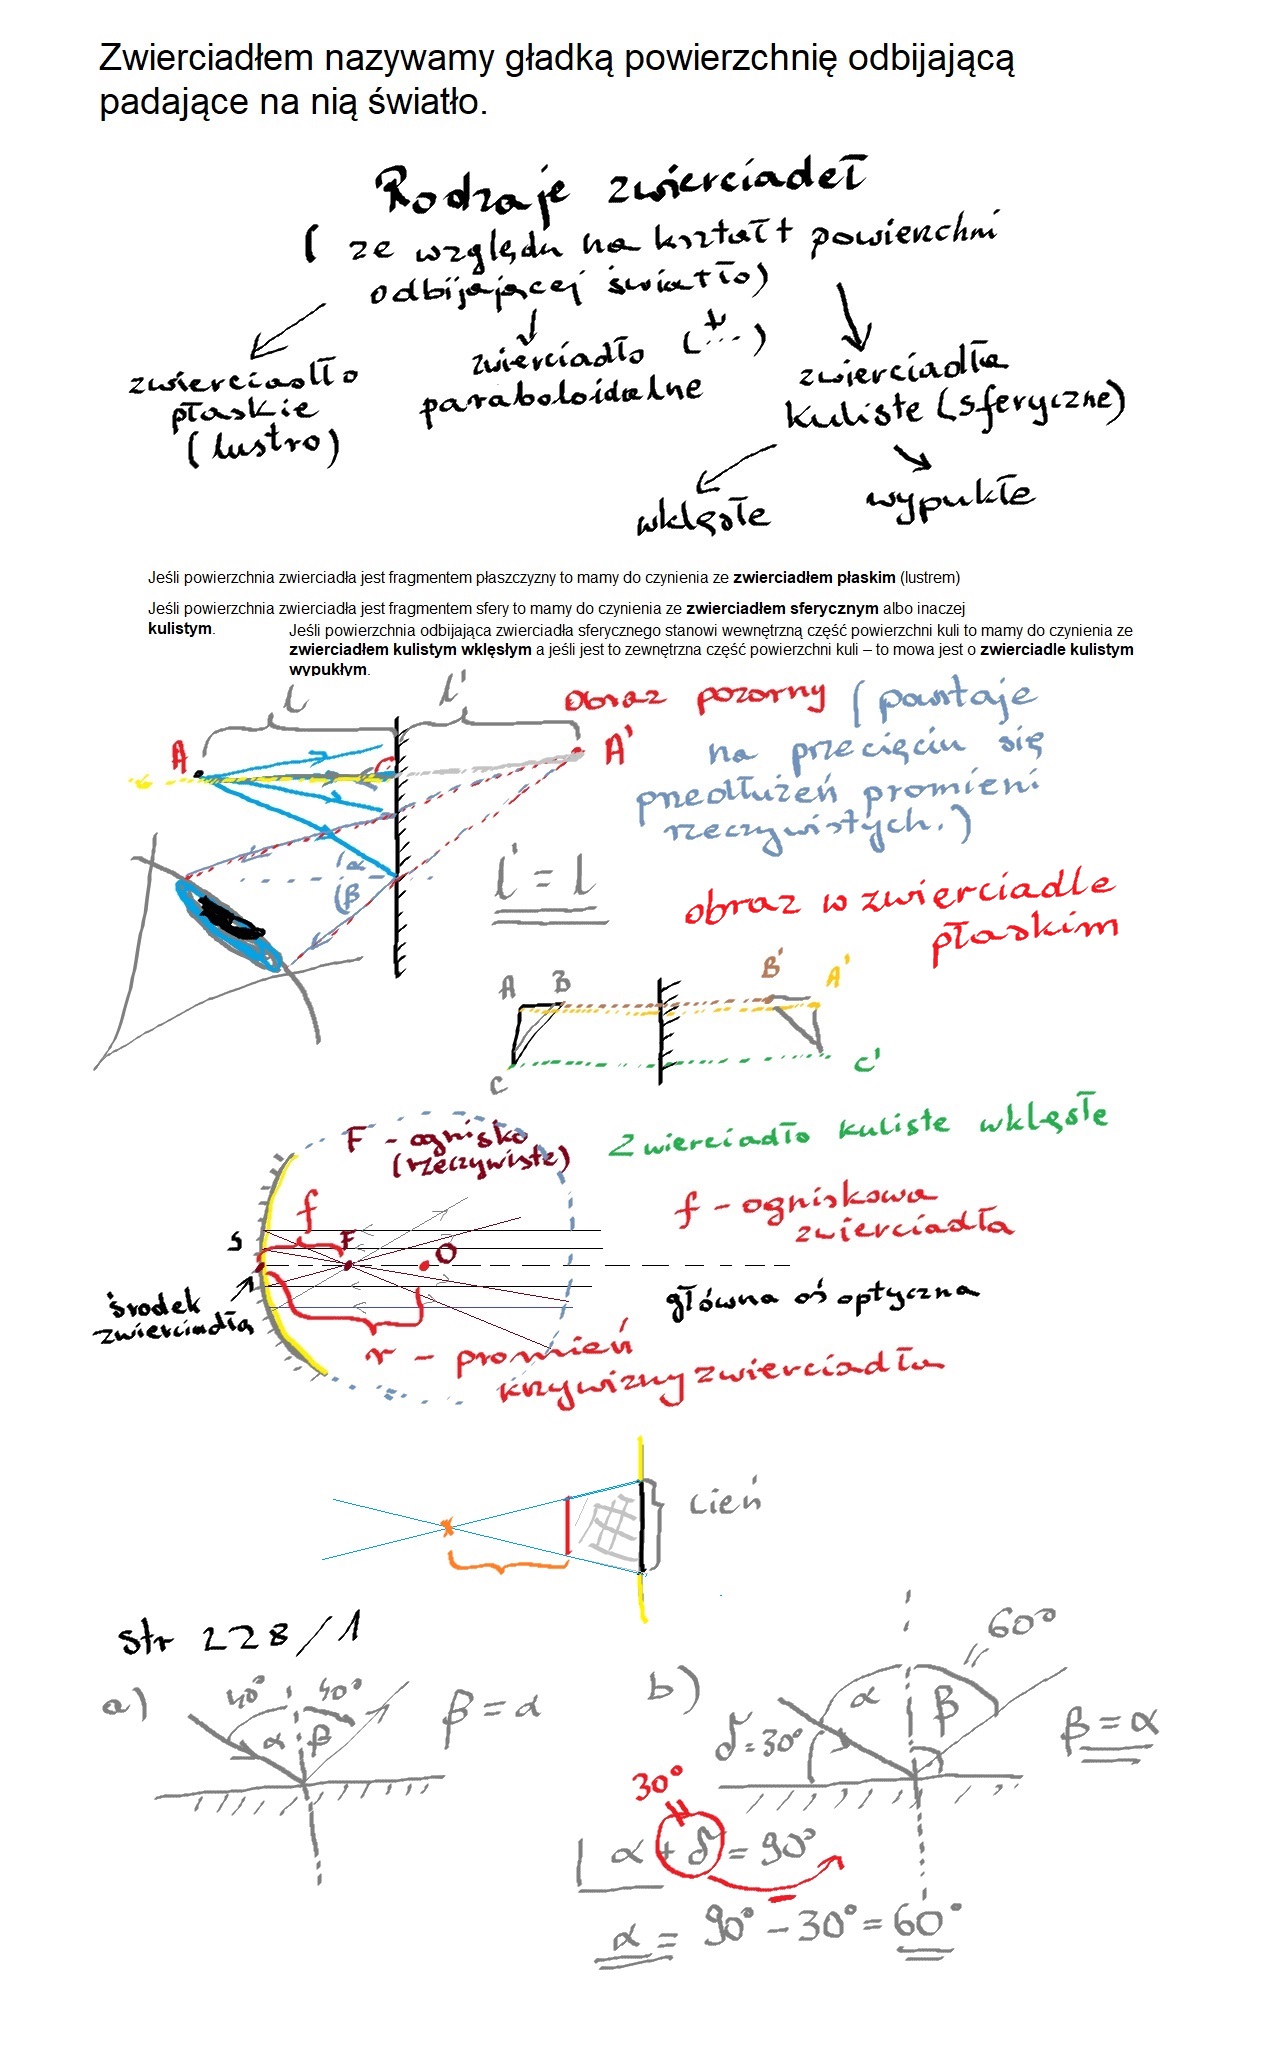 Zwierciadłem nazywamy gładką powierzchnię odbijającą
padające na nią światło.
Rodzaje zwierciadeł
( ze względu na kształt powierzchni
odbijającej światło)
zwierciadło
płaskie
(lustro)
zwierciadło
paraboloidalne
(...)
zwierciadła
kuliste (sferyczne)
wklęsłe
wypukłe
Jeśli powierzchnia zwierciadła jest fragmentem płaszczyzny to mamy do czynienia ze zwierciadłem płaskim (lustrem)
Jeśli powierzchnia zwierciadła jest fragmentem sfery to mamy do czynienia ze zwierciadłem sferycznym albo inaczej
kulistym.
Jeśli powierzchnia odbijająca zwierciadła sferycznego stanowi wewnętrzną część powierzchni kuli to mamy do czynienia ze
zwierciadłem kulistym wklęsłym a jeśli jest to zewnętrzna część powierzchni kuli – to mowa jest o zwierciadle kulistym
wypukłym.
l
l'
A
A'
obraz pozorny (powstaje
na przecięciu się
przedłużeń promieni
rzeczywistych.)
α
β
l' = l
obraz w zwierciadle
płaskim
A B
B' A'
C
C'
Zwierciadło kuliste wklęsłe
F - ognisko
(rzeczywiste)
f
S
F
O
f - ogniskowa
zwierciadła
środek
zwierciadła
główna oś optyczna
r - promień
krzywizny zwierciadła
cień
str 228/1
a)
40° 40°
α β
β = α
b)
60°
α
β
δ = 30°
β = α
30°
α + δ = 90°
α = 90° - 30° = 60°